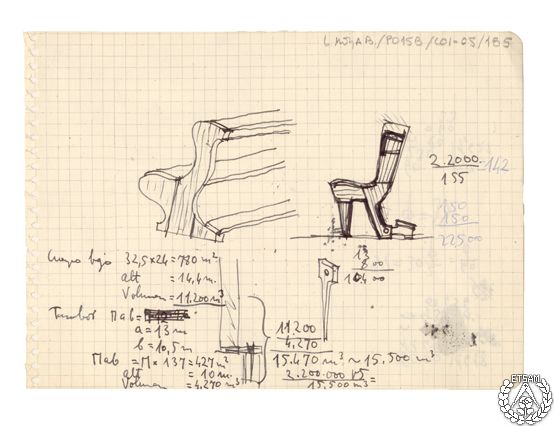 L.M./AB./P015B/COI-05/185
2.2000 = 142
155
150
150
22500
Cuerpo bajo 32,5x24=780 m²
alt = 14,4 m.
Volumen = 11.200 m³
Tambor Πab =
a = 13 m
b = 10,5 m
Πab = Π x 137 = 427 m²
alt = 10 m.
Volumen = 4.270 m³
13
800
10400
11200
4.270
15.470 m³ ~ 15.500 m³
2.200.000
15.500 m³ =
ETSAM